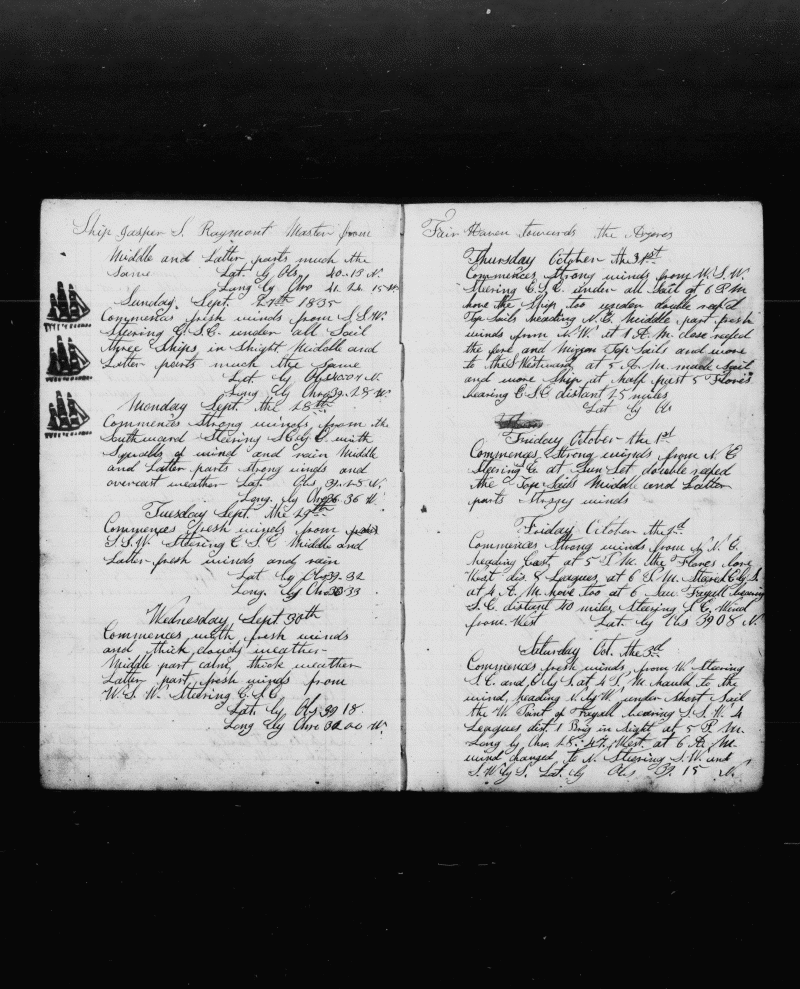 Ship Jasper S. Raymont Master from
Middle and Latter parts much the
same Lat by Obs 40.13 N.
Long by Chro 41.24.15 W.
Sunday, Sept. 27th 1835
Commences fresh winds from S.S.W.
Steering E.S.E. under all Sail
three Ships in Shight. Middle and
Latter parts much the Same
Lat by Obs 40.04 N
Long by Chro 39.28 W.
Monday Sept. the 28th
Commences Strong winds from the
Southward Steering S.E. by E. with
Squalls of wind and rain Middle
and Latter parts strong winds and
overcast weather Lat. Obs. 39.28 N.
Long. by Chro 36.36 W.
Tuesday Sept. the 29th
Commences fresh winds from
S.S.W. Steering E.S.E Middle and
Latter fresh winds and rain
Lat by Obs 39.32
Long. by Chro 33
Wednesday, Sept 30th
Commences with fresh winds
and thick cloudy weather
Middle part calm, thick weather
Latter part fresh winds from
W.S.W. Steering E.S.E
Lat. by Obs 39 18.
Long by Chro 32 00 W.
Fair Haven towards the Azores
Thursday October the 31st
Commences Strong winds from W.S.W.
Steering E.S.E. under all Sail at 6 P.M
hove the Ship too under double reef'd
Top Sails heading N.E. Middle part fresh
winds from N.W. at 1 A.M. close reefed
the fore and Mizzen Top Sails and wore
to the S Westward at 5 A.M. made Sail
and wore Ship at half past 5 Flores
bearing E.S.E distant 25 miles
Lat by Obs
Friday October the 1st
Commences Strong winds from N.E
Steering E. at Sun Set double reefed
the Top Sails Middle and Latter
parts Strong winds
Friday October the 2d
Commences Strong winds from N.N.E.
heading East, at 5 P.M. the Flores bore
West dis. 8 Leagues, at 6 P.M. Steered E by S.
at 4 A.M. hove too at 6 Saw Fayall bearing
S.E. distant 40 miles Steering S.E. Wind
from West Lat. by Obs 39 08 N
Saturday Oct. the 3d
Commences fresh winds, from W. Steering
S.E. and E by S. at 4 P.M. hauld to the
wind, heading N. by W. under Short Sail
the W. Point of Fayall bearing S.S.W. 4
Leagues dist. 1 Brig in Sight at 5 P.M.
Long by Chro. 28. West. at 6 A.M.
wind changed to N. Steering S.W. and
S.W. by S. Lat. by Obs 39 15 N.